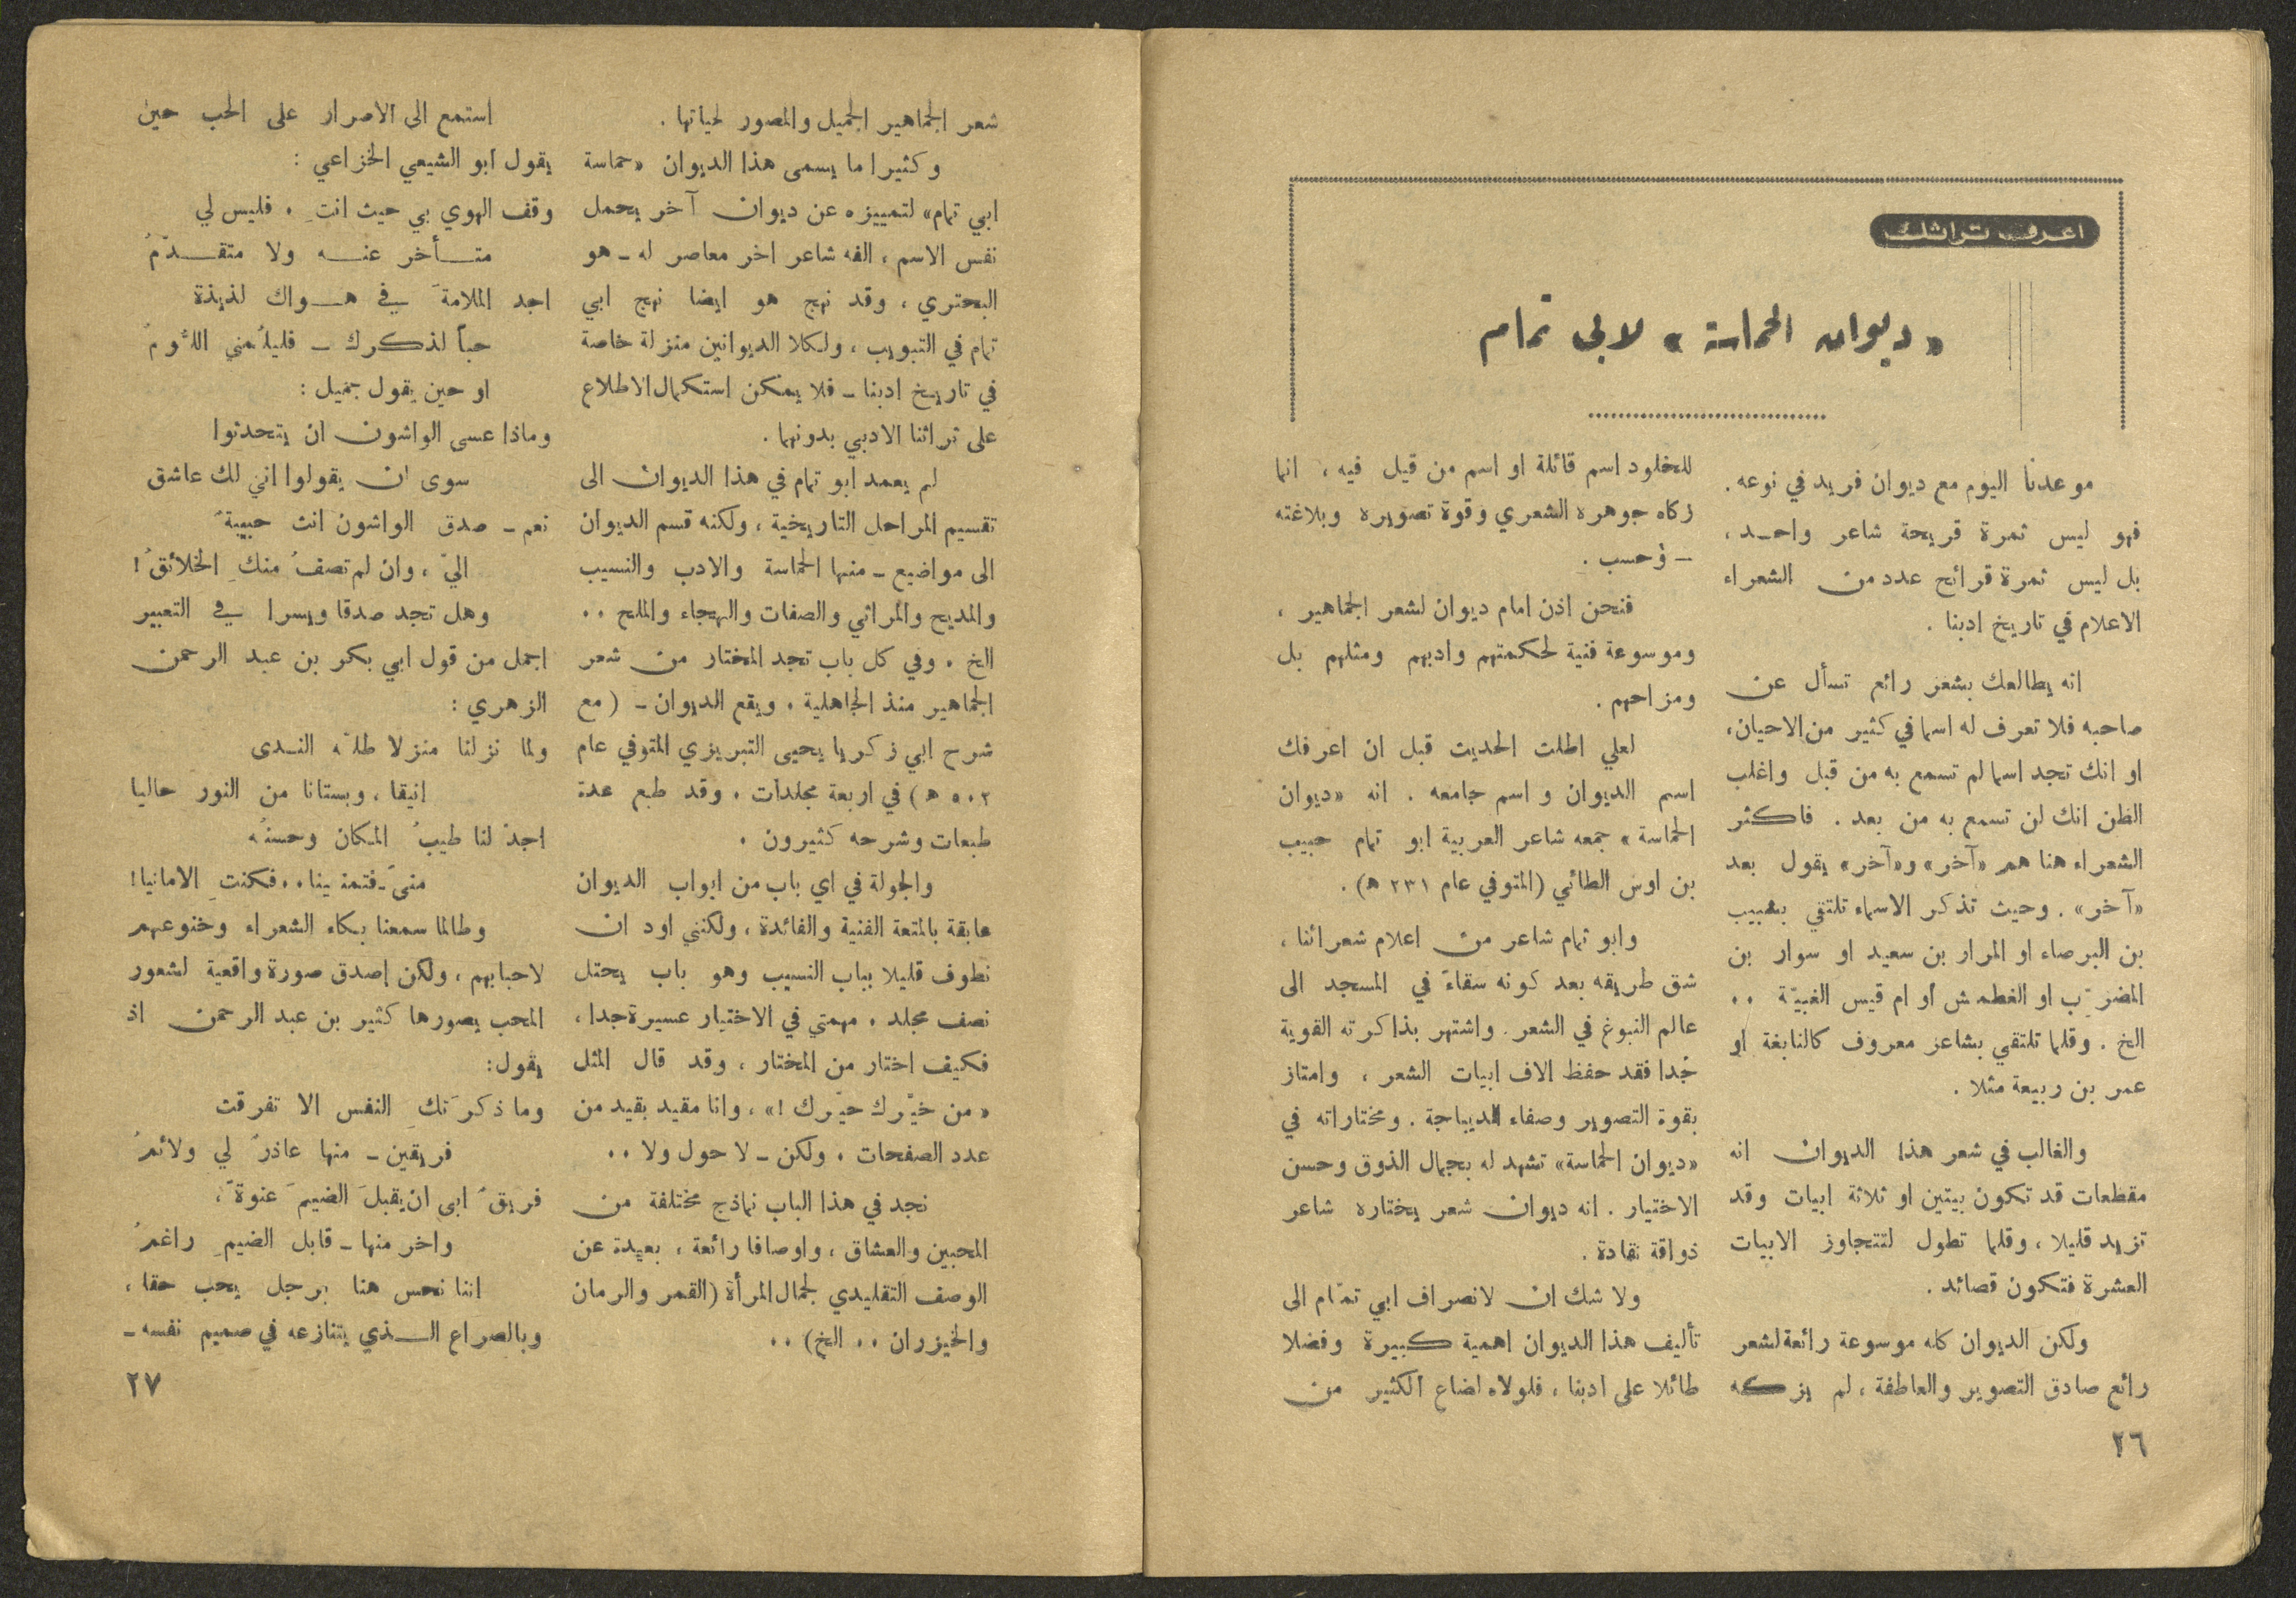 اعرف تراثك
« ديوان الحماسة » لابي تمام
موعدنا اليوم مع ديوان فريد في نوعه.
فهو ليس ثمرة قريحة شاعر واحد،
بل ليس ثمرة قرائح عدد من الشعراء
الاعلام في تاريخ ادبنا .
انه يطالعك بشعر رائع تسأل عن
صاحبه فلا تعرف له اسما في كثير من الاحيان،
او انك تجد اسما لم تسمع به من قبل واغلب
الظن انك لن تسمع به من بعد . فاكثر
الشعراء هنا هم «آخر» و«آخر» يقول بعد
«آخر» . وحيث تذكر الاسماء تلتقي بشبيب
بن البرصاء او المرار بن سعيد او سوار بن
المضرّب او الغطمش أو ام قيس الغبيّة ..
الخ . وقلما تلتقي بشاعر معروف كالنابغة او
عمر بن ربيعة مثلا .
والغالب في شعر هذا الديوان انه
مقطعات قد تكون بيتين او ثلاثة ابيات وقد
تزيد قليلا ، وقلما تطول لتتجاوز الابيات
العشرة فتكون قصائد .
ولكن الديوان كله موسوعة رائعة لشعر
رائع صادق التصوير والعاطفة ، لم يزكه
للخلود اسم قائلة او اسم من قيل فيه ، انما
زكاه جوهره الشعري وقوة تصويره وبلاغته
– وحسب .
فنحن اذن امام ديوان لشعر الجماهير ،
وموسوعة فنية لحكمتهم وادبهم ومثلهم بل
ومزاحهم .
لعلي اطلت الحديث قبل ان اعرفك
اسم الديوان و اسم جامعه . انه «ديوان
الحماسة » جمعه شاعر العربية ابو تمام حبيب
بن اوس الطائي (المتوفي عام ٢٣١ ه) .
وابو تمام شاعر من اعلام شعرائنا ،
شق طريقه بعد كونه سقاءً في المسجد الى
عالم النبوغ في الشعر . واشتهر بذاكرته القوية
جدا فقد حفظ الاف ابيات الشعر ، وامتاز
بقوة التصوير وصفاء الديباجة . ومختاراته في
«ديوان الحماسة» تشهد له بجمال الذوق وحسن
الاختيار . انه ديوان شعر يختاره شاعر
ذواقة نقادة .
ولا شك ان لانصراف ابي تمّام الى
تأليف هذا الديوان اهمية كبيرة وفضلا
طائلا على ادبنا ، فلولاه لضاع الكثير من
٢٦
شعر الجماهير الجميل والمصور لحياتها .
وكثيرا ما يسمى هذا الديوان «حماسة
ابي تمام» لتمييزه عن ديوان آخر يحمل
نفس الاسم ، الفه شاعر اخر معاصر له - هو
البحتري ، وقد نهج هو ايضا نهج ابي
تمام في التبويب ، ولكلا الديوانين منزلة خاصة
في تاريخ ادبنا - فلا يمكن استكمال الاطلاع
على تراثنا الادبي بدونهما .
لم يعمد ابو تمام في هذا الديوان الى
تقسيم المراحل التاريخية ، ولكنه قسم الديوان
الى مواضيع - منها الحماسة والادب والنسيب
والمديح والمراثي والصفات والهجاء والملح ..
الخ . وفي كل باب تجد المختار من شعر
الجماهير منذ الجاهلية . ويقع الديوان - (مع
شرح ابي زكريا يحيى التبريزي المتوفي عام
٥٠٢ ه) في اربعة مجلدات . وقد طبع عدة
طبعات وشرحه كثيرون .
والجولة في اي باب من ابواب الديوان
عابقة بالمتعة الفنية والفائدة ، ولكنني اود ان
نطوف قليلا بباب النسيب وهو باب يحتل
نصف مجلد . مهمتي في الاختيار عسيرة جدا ،
فكيف اختار من المختار ، وقد قال المثل
« من خيّرك حيّرك !» ، وانا مقيد بقيد من
عدد الصفحات . ولكن - لا حول ولا ..
نجد في هذا الباب نماذج مختلفة من
المحبين والعشاق ، واوصافا رائعة ، بعيدة عن
الوصف التقليدي لجمال المرأة (القمر والرمان
والخيزران .. الخ) ..
استمع الى الاصرار على الحب حين
يقول ابو الشيعي الخزاعي :
وقف الهوي بي حيث انتِ . فليس لي
متأخر عنه ولا متقدّمُ
اجد الملامةَ في هواك لذيذة
حباً لذكرك - فليلُمني اللوّمُ
او حين يقول جميل :
وماذا عسى الواشون ان يتحدثوا
سوى ان يقولوا اني لك عاشق
نعم - صدق الواشون انت حبيبةٌ
اليّ ، وان لم تصفُ منكِ الخلائقُ !
وهل تجد صدقا ويسرا في التعبير
اجمل من قول ابي بكر بن عبد الرحمن
الزهري :
ولما نزلنا منزلا طلّه الندى
انيقا ، وبستانا من النور حاليا
اجدّ لنا طيبُ المكان وحسنُه
منىً - فتمنينا .. فكنتِ الامانيا !
وطالما سمعنا بكاء الشعراء وخنوعهم
لاحبابهم ، ولكن إصدق صورة واقعية لشعور
المحب يصورها كثير بن عبد الرحمن اذ
يقول :
وما ذكرَتكِ النفس الا تفرقت
فريقين - منها عاذرٌ لي ولائمُ
فريقٌ ابى ان يقبلَ الضيمَ عنوةً ،
واخر منها - قابل الضيمِ راغمُ
اننا نحس هنا برجل يحب حقا ،
وبالصراع الذي يتنازعه في صميم نفسه -
٢٧